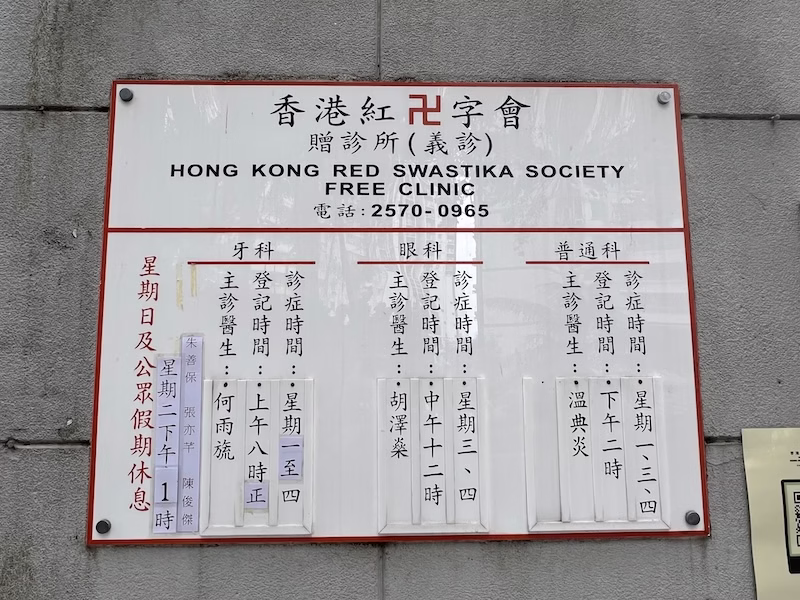 香港紅卍字會
贈診所(義診)
HONG KONG RED SWASTIKA SOCIETY
FREE CLINIC
電話:2570-0965
普通科
診症時間:星期一、三、四
登記時間:下午二時
主診醫生:溫典炎
眼科
診症時間:星期三、四
登記時間:中午十二時
主診醫生:胡澤燊
牙科
診症時間:星期一至四
登記時間:上午八時正
主診醫生:何雨旒
朱善保 張亦芊 陳俊傑
星期二下午1時
星期日及公眾假期休息